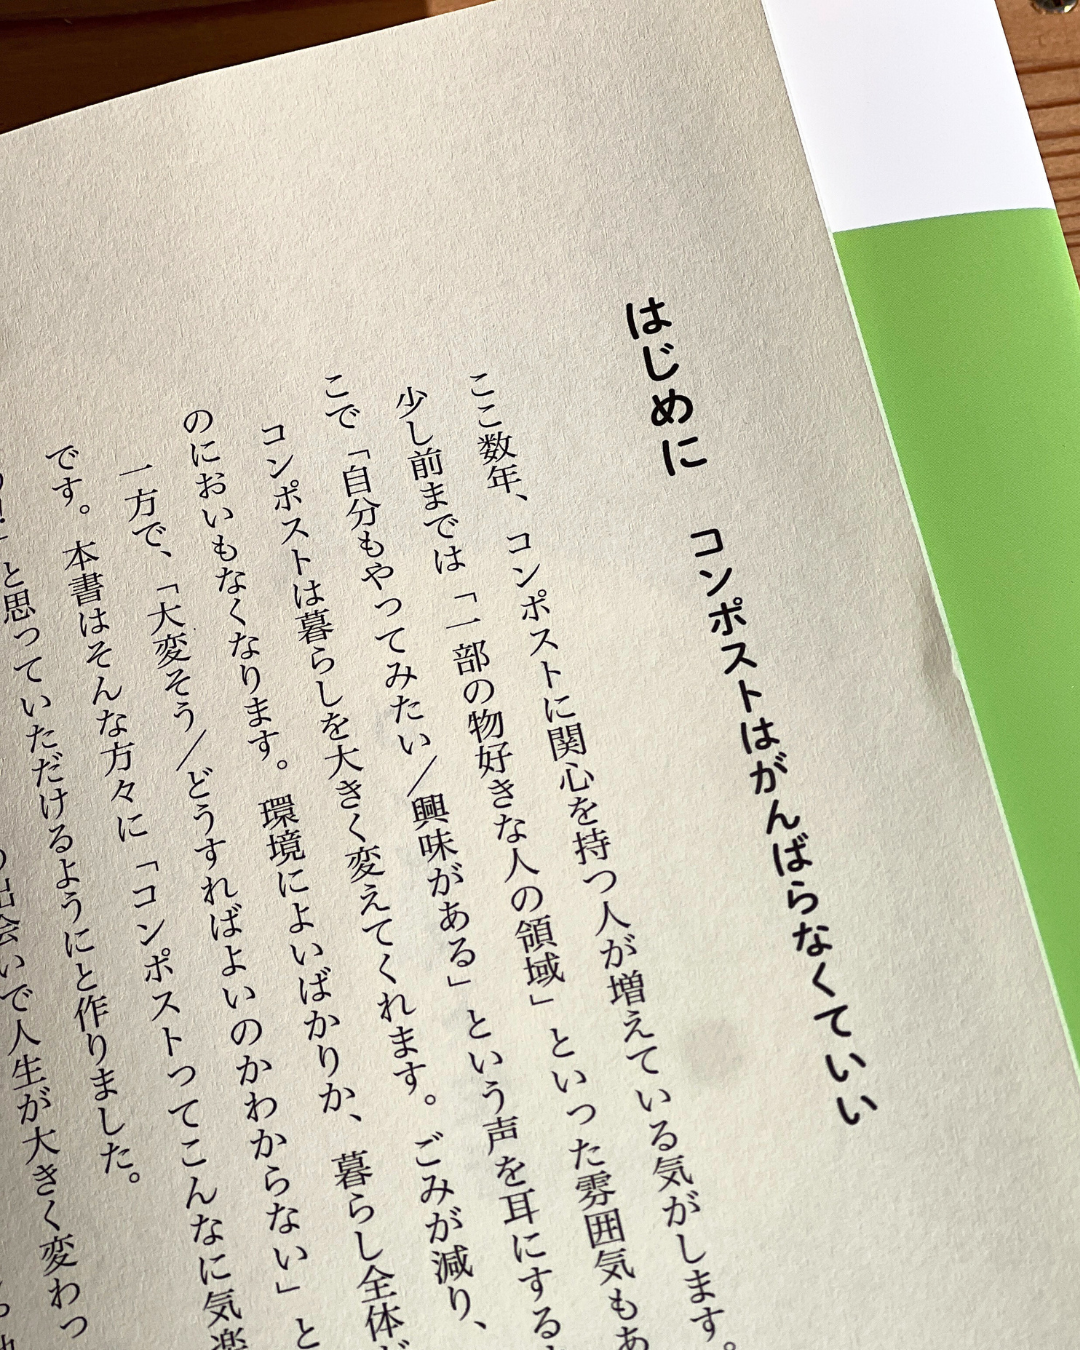 はじめに　コンポストはがんばらなくていい
ここ数年、コンポストに関心を持つ人が増えている気がします。
少し前までは「一部の物好きな人の領域」といった雰囲気もあ
こで「自分もやってみたい／興味がある」という声を耳にする
コンポストは暮らしを大きく変えてくれます。ごみが減り、
のにおいもなくなります。環境によいばかりか、暮らし全体が
一方で、「大変そう／どうすればよいのかわからない」と
です。本書はそんな方々に「コンポストってこんなに気楽
と思っていただけるようにと作りました。
出会いで人生が大きく変わっ